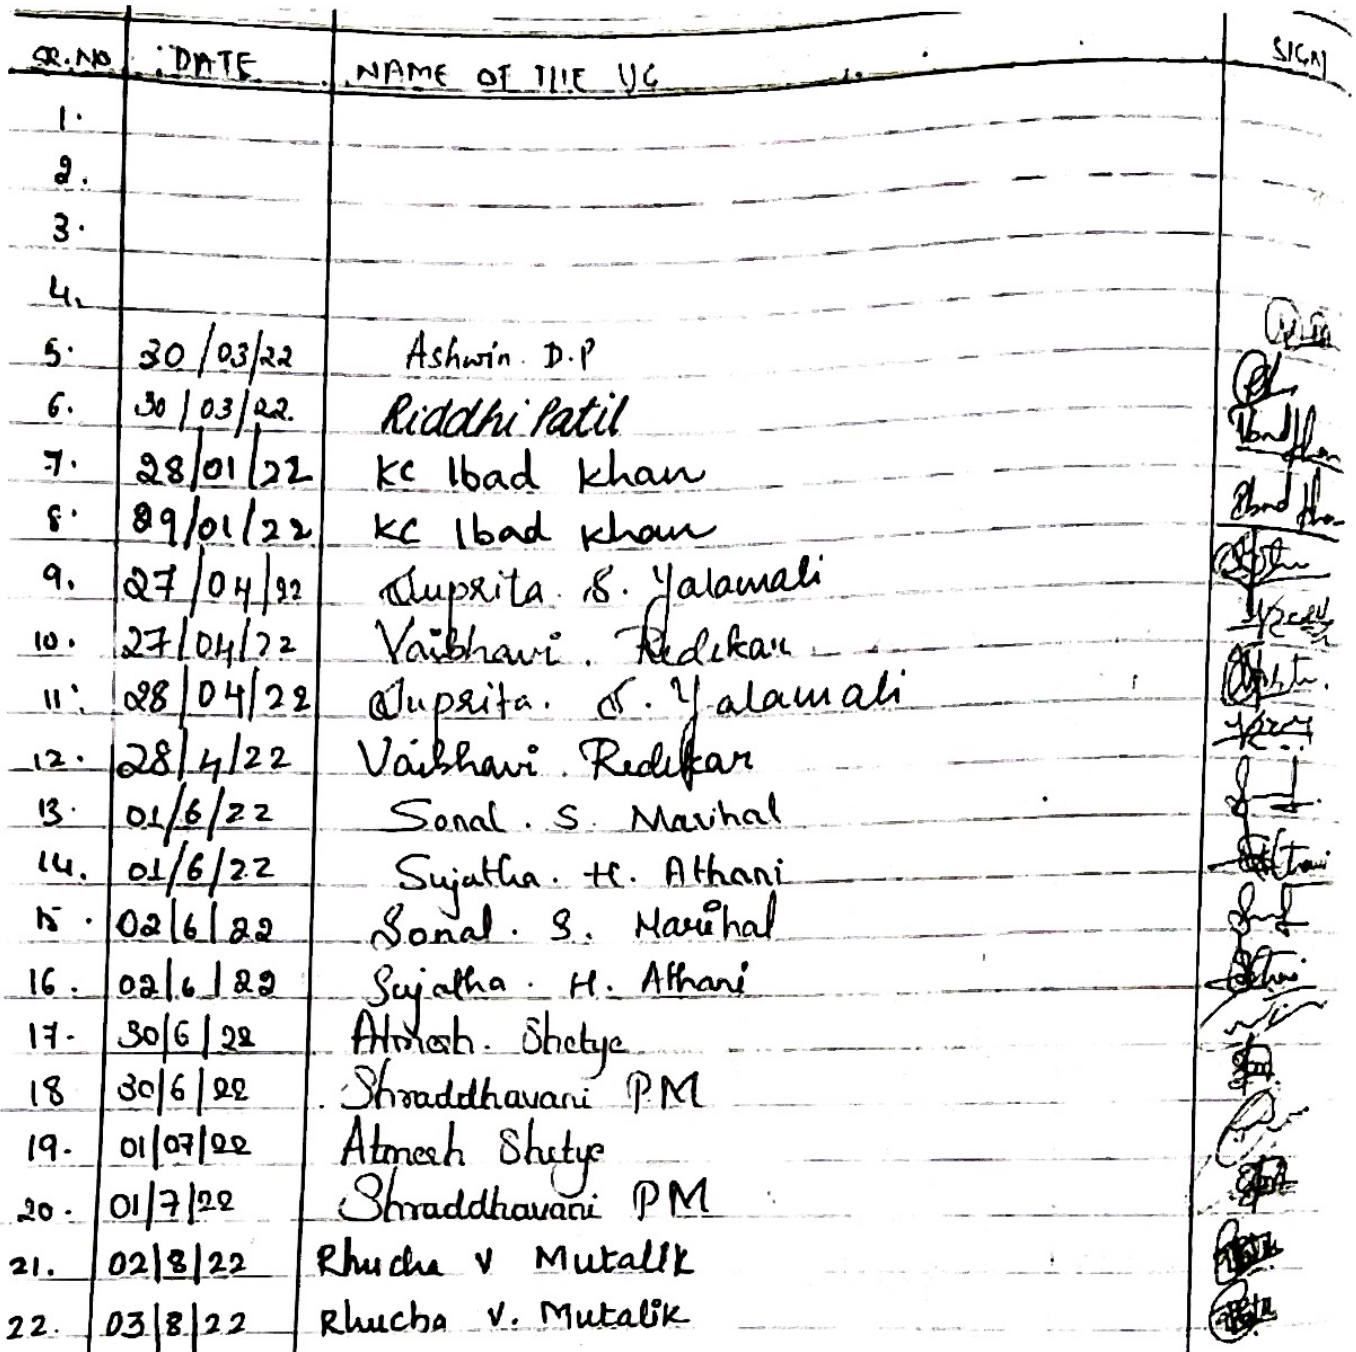 SR.NO DATE NAME OF THE UG SIGN
1.
2.
3.
4.
5. 30/03/22 Ashwin. D.P
6. 30/03/22. Riddhi Patil
7. 28/01/22 KC Ibad Khan Ibad Khan
8. 29/01/22 KC Ibad Khan Ibad Khan
9. 27/04/22 Suprita. S. Yalamali
10. 27/04/22 Vaibhavi. Redekar
11. 28/04/22 Suprita. S. Yalamali
12. 28/4/22 Vaibhavi. Redekar
13. 01/6/22 Sonal. S. Marihal
14. 01/6/22 Sujatha. H. Athani
15. 02/6/22 Sonal. S. Marihal
16. 02/6/22 Sujatha. H. Athani
17. 30/6/22 Atmesh. Shetye
18 30/6/22 Shraddhavani PM
19. 01/07/22 Atmesh Shetye
20. 01/7/22 Shraddhavani PM
21. 02/8/22 Rhucha V Mutalik
22. 03/8/22 Rhucha V. Mutalik